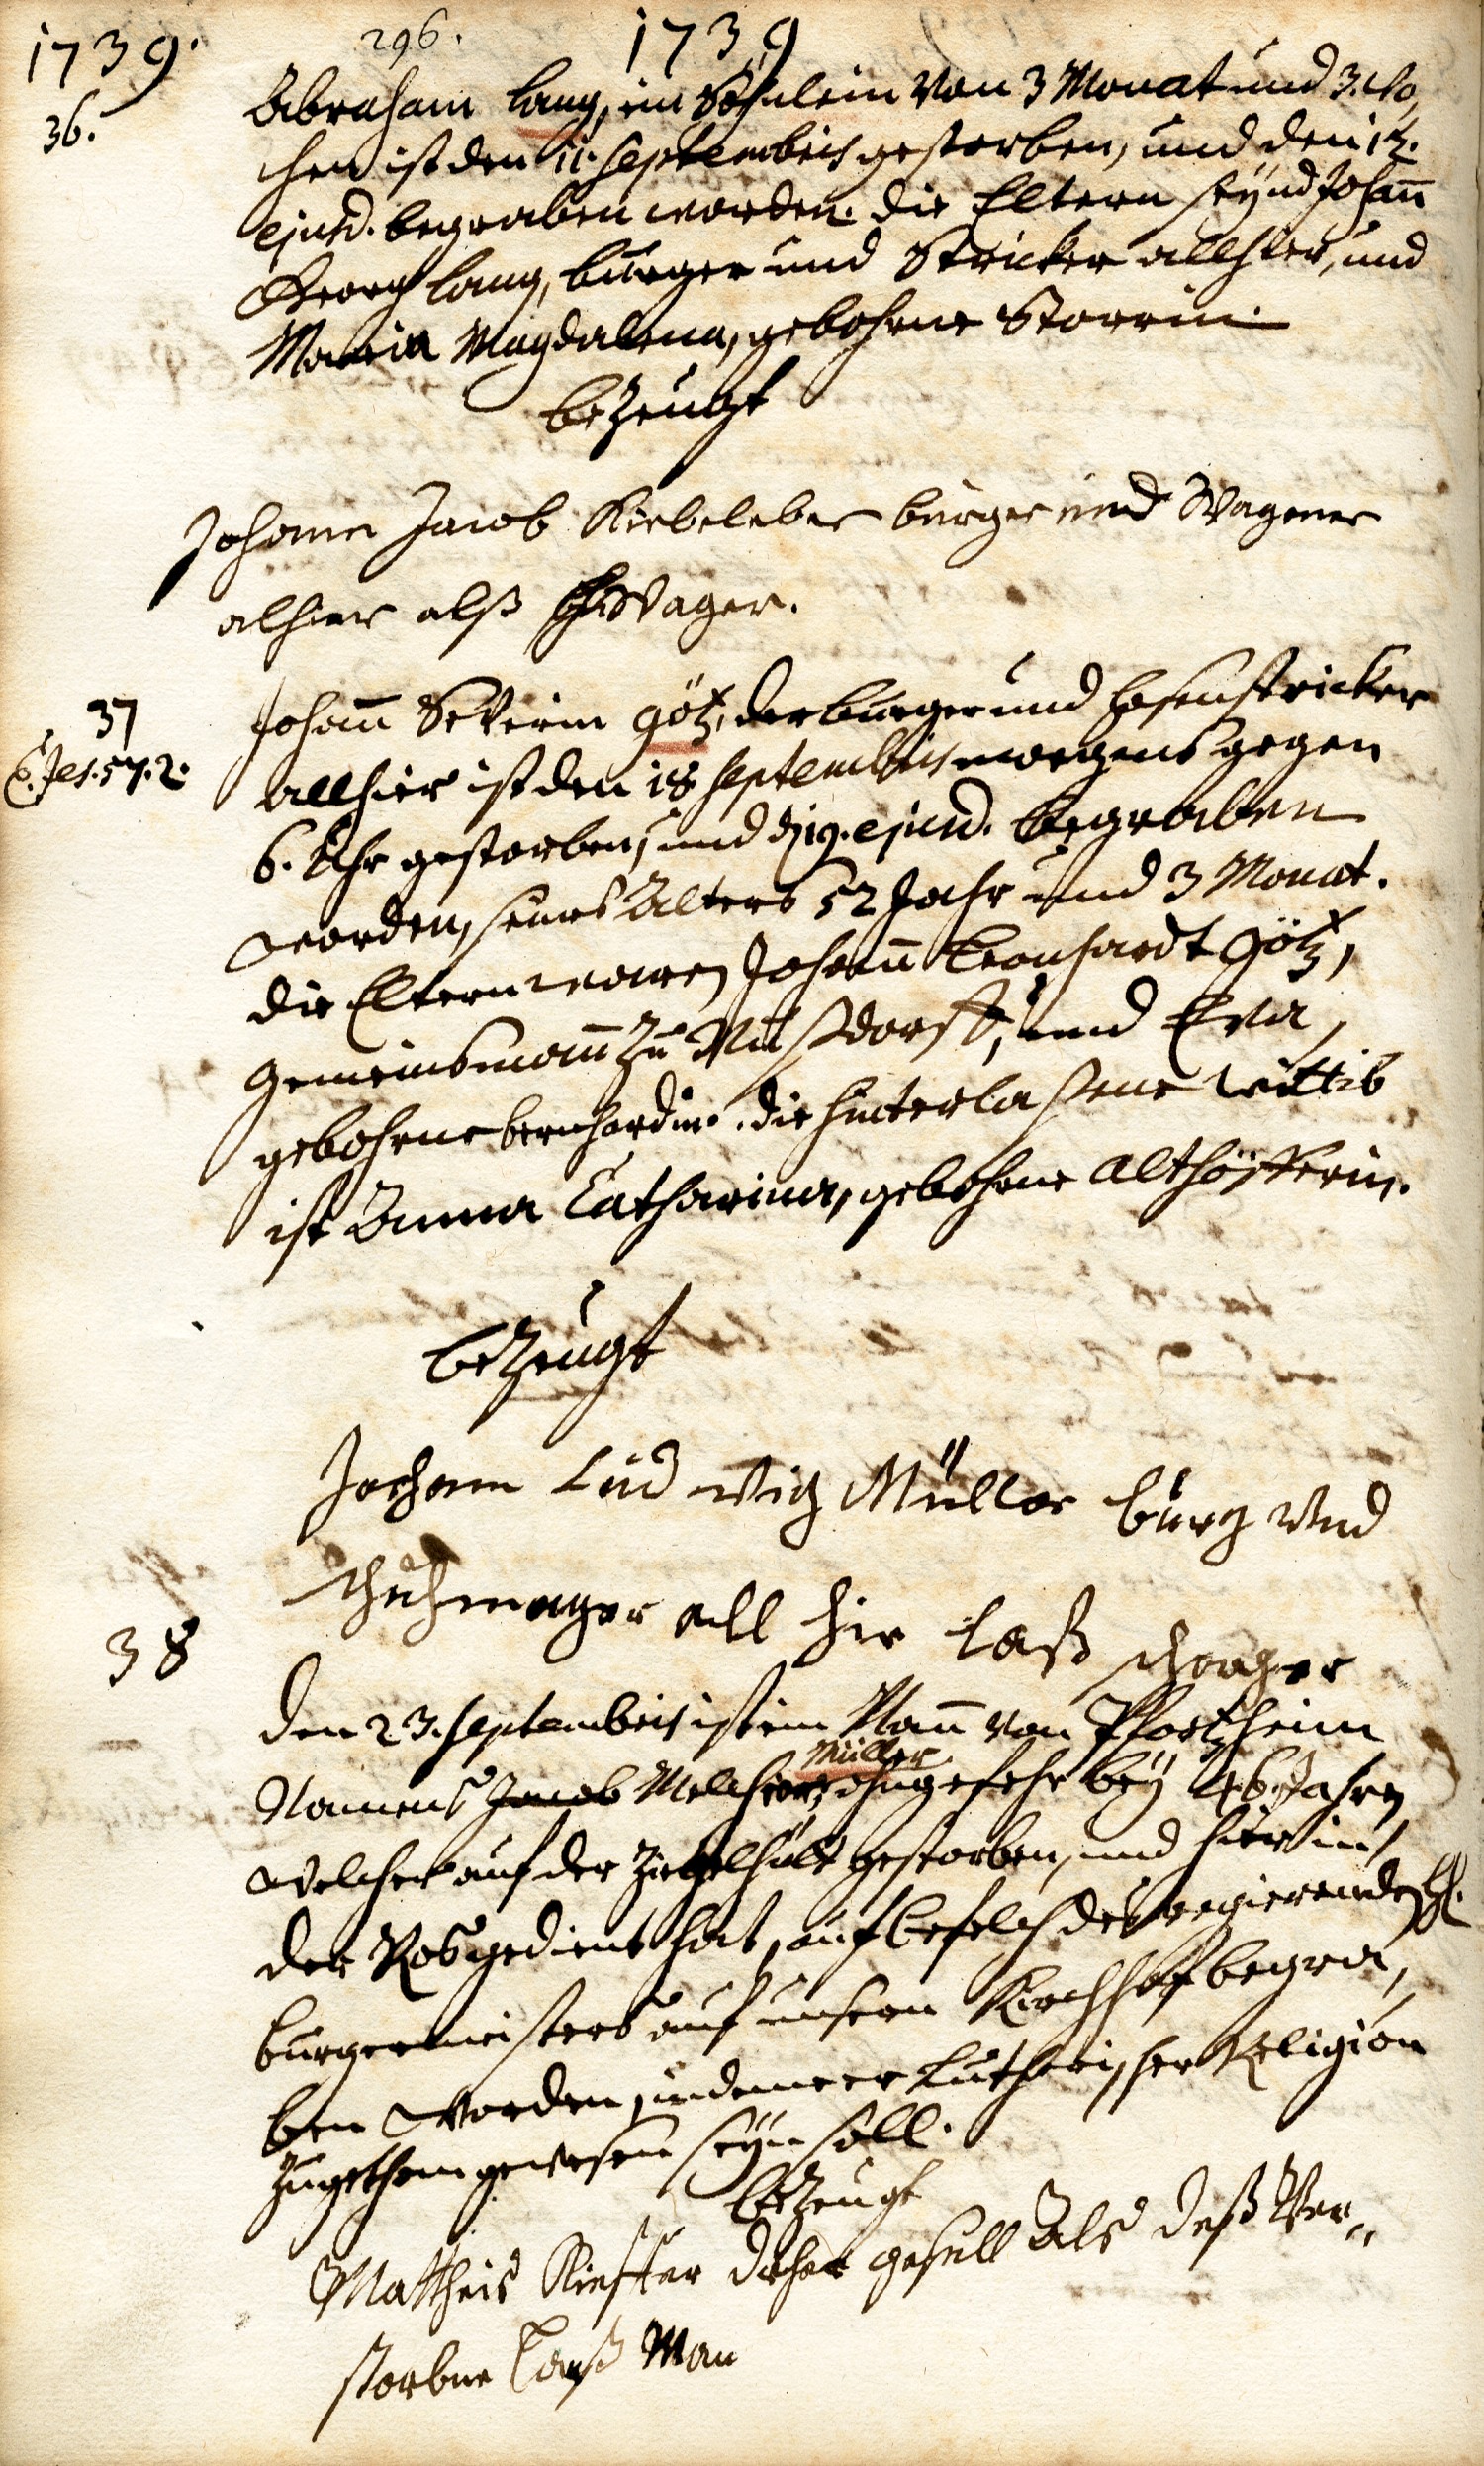 1739. 296. 1739
36. Abraham Lang, ein Söhnlein von 3 Monat und 3. Wo,
chen ist den 11. Septembris gestorben, und den 12.
ejusd. begraben worden. die Eltern seynd Johañ
Georg Lang, burger und Stricker allhier, und
Maria Magdalena, gebohrne Storrin.
bezeugt
Johann Jacob Kiebeleber burger und Wagener
alhier alß Schwager.
37 Johañ Severin Götz, der burger und hosenstricker
C. Jes. 57. 2. allhier ist den 18 Septembris morgens gegen
6. Uhr gestorben, und d. 19. ejusd. begraben
worden, seines Alters 52 Jahr und 3 Monat.
die Eltern waren Johañ Leonhardt Götz,
Gemeinsmañ zu Nußdorff, und Eva,
gebohrne bernhardin. die hinterlaßene Wittib
ist Anna Catharina, gebohrne Althöfferin.
bezeugt
Johann Lud wig Müller burg Und
schuhmager all hir laß schwager
38 den 23. Septembris ist ein Mañ von Pfortzheim
Müller
Namens Jacob Melchior, ohngefehr bey 46. Jahren
welcher auf der Ziegelhütt gestorben, und hier in
der gedient hat, auf befelch des regierenden H.
burgermeisters auf unsern Kirchhoff begra,
ben worden, indeme er Lutherischer Religion
zugethan gewesen seyn soll.
bezeugt
Mattheis Kieffer gesell Als deß Ver,,
storbne Man